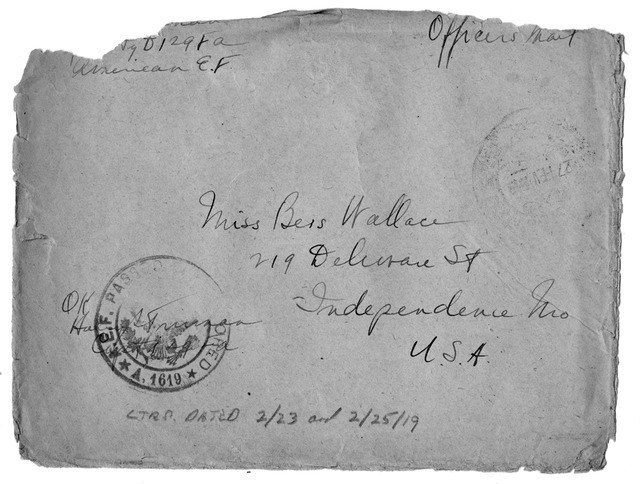 Officers Mail
By D 129 F a
American E.F.
27 FEV
Miss Bess Wallace
219 Delaware St
Independence Mo
U.S.A.
OK
Harry S. Truman
E.F. PASSED
ORED
★ A. 1619 ★
LTRS. DATED 2/23 and 2/25/19